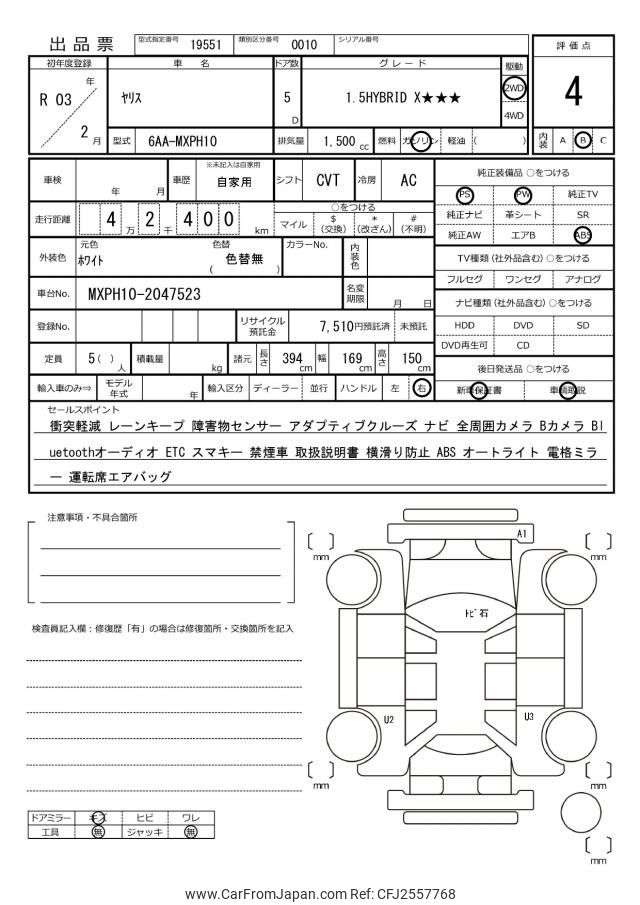 出品票 型式指定番号 19551 類別区分番号 0010 シリアル番号
評価点
4
初年度登録 車名 ドア数 グレード 駆動
R 03 年 / 2 月
ヤリス
5 D
1.5HYBRID X★★★
2WD
4WD
型式 6AA-MXPH10 排気量 1,500 cc 燃料 ガソリン 軽油 ( )
内装 A B C
車検 年 月 車歴 ※未記入は自家用 自家用 シフト CVT 冷房 AC
走行距離 4 万 2 千 4 0 0 km
○をつける
マイル $(交換) *(改ざん) #(不明)
外装色 元色 ホワイト 色替 ( 色替無 ) カラーNo. 内装色
車台No. MXPH10-2047523 名変期限 月 日
登録No. リサイクル預託金 7,510円預託済 未預託
定員 5( )人 積載量 kg 諸元 長さ 394cm 幅 169cm 高さ 150cm
輸入車のみ⇒ モデル年式 年 輸入区分 ディーラー 並行 ハンドル 左 右
純正装備品 ○をつける
PS PW 純正TV
純正ナビ 革シート SR
純正AW エアB ABS
TV種類(社外品含む)○をつける
フルセグ ワンセグ アナログ
ナビ種類(社外品含む)○をつける
HDD DVD SD
DVD再生可 CD
後日発送品 ○をつける
新車保証書 車輌取説
セールスポイント
衝突軽減 レーンキープ 障害物センサー アダプティブクルーズ ナビ 全周囲カメラ Bカメラ Bl
uetoothオーディオ ETC スマキー 禁煙車 取扱説明書 横滑り防止 ABS オートライト 電格ミラ
ー 運転席エアバッグ
注意事項・不具合箇所
検査員記入欄：修復歴「有」の場合は修復箇所・交換箇所を記入
A1
mm
mm
トビ石
U2
U3
mm
mm
mm
ドアミラー キズ ヒビ ワレ
工具 無 ジャッキ 無
www.CarFromJapan.com Ref: CFJ2557768